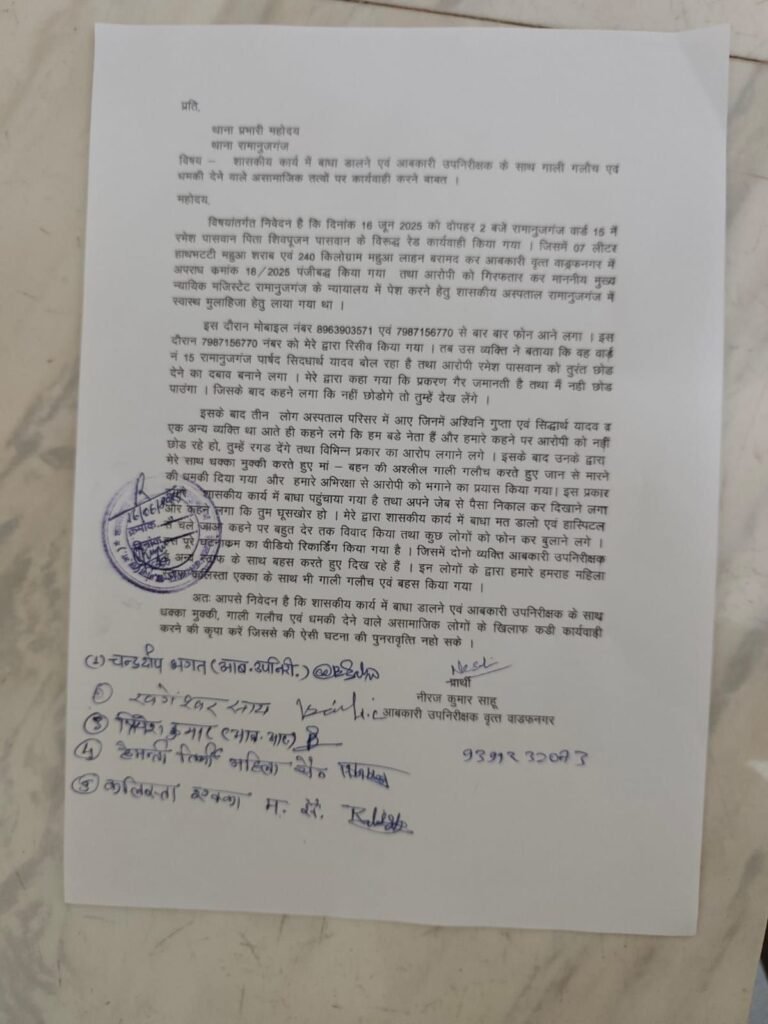 प्रति,
थाना प्रभारी महोदय
थाना रामानुजगंज
विषय – शासकीय कार्य में बाधा डालने एवं आबकारी उपनिरीक्षक के साथ गाली गलौच एवं
धमकी देने वाले असामाजिक तत्वों पर कार्यवाही करने बाबत ।
महोदय,
विषयांतर्गत निवेदन है कि दिनांक 16 जून 2025 को दोपहर 2 बजे रामानुजगंज वार्ड 15 में
रमेश पासवान पिता शिवपूजन पासवान के विरूद्ध रेड कार्यवाही किया गया । जिसमें 07 लीटर
हाथभटटी महुआ शराब एवं 240 किलोग्राम महुआ लाहन बरामद कर आबकारी वृत्त वाड्रफनगर में
अपराध कमांक 18/2025 पंजीबद्ध किया गया तथा आरोपी को गिरफतार कर माननीय मुख्य
न्यायिक मजिस्टेट रामानुजगंज के न्यायालय में पेश करने हेतु शासकीय अस्पताल रामानुजगंज में
स्वास्थ मुलाहिजा हेतु लाया गया था ।
इस दौरान मोबाइल नंबर 8963903571 एवं 7987156770 से बार बार फोन आने लगा । इस
दौरान 7987156770 नंबर को मेरे द्वारा रिसीव किया गया । तब उस व्यक्ति ने बताया कि वह वार्ड
नं 15 रामानुजगंज पार्षद सिदधार्थ यादव बोल रहा है तथा आरोपी रमेश पासवान को तुरंत छोड
देने का दबाव बनाने लगा । मेरे द्वारा कहा गया कि प्रकरण गैर जमानती है तथा मैं नही छोड
पाउंगा । जिसके बाद कहने लगा कि नहीं छोडोगे तो तुम्हें देख लेंगे ।
इसके बाद तीन लोग अस्पताल परिसर में आए जिनमें अश्विनि गुप्ता एवं सिद्धार्थ यादव व
एक अन्य व्यक्ति था आते ही कहने लगे कि हम बडे नेता हैं और हमारे कहने पर आरोपी को नहीं
छोड रहे हो, तुम्हें रगड देंगे तथा विभिन्न प्रकार का आरोप लगाने लगे । इसके बाद उनके द्वारा
मेरे साथ धक्का मुक्की करते हुए मां – बहन की अश्लील गाली गलौच करते हुए जान से मारने
की धमकी दिया गया और हमारे अभिरक्षा से आरोपी को भगाने का प्रयास किया गया। इस प्रकार
शासकीय कार्य में बाधा पहुंचाया गया है तथा अपने जेब से पैसा निकाल कर दिखाने लगा
और कहने लगा कि तुम घूसखोर हो । मेरे द्वारा शासकीय कार्य में बाधा मत डालो एवं हास्पिटल
से चले जाओ कहने पर बहुत देर तक विवाद किया तथा कुछ लोगों को फोन कर बुलाने लगे ।
इस पूरे घटनाक्रम का वीडियो रिकार्डिंग किया गया है । जिसमें दोनो व्यक्ति आबकारी उपनिरीक्षक
अन्य स्टाफ के साथ बहस करते हुए दिख रहे हैं । इन लोगों के द्वारा हमारे हमराह महिला
कलिस्ता एक्का के साथ भी गाली गलौच एवं बहस किया गया ।
अतः आपसे निवेदन है कि शासकीय कार्य में बाधा डालने एवं आबकारी उपनिरीक्षक के साथ
धक्का मुक्की, गाली गलौच एवं धमकी देने वाले असामाजिक लोगों के खिलाफ कडी कार्यवाही
करने की कृपा करें जिससे की ऐसी घटना की पुनरावृत्ति नहो सके ।
प्रार्थी
नीरज कुमार साहू
आबकारी उपनिरीक्षक वृत्त वाडफनगर
(1) चन्द्रदीप भगत (आब.उपनिरी.)
(2) खगेश्वर साय
(3) कुमार (आब.आर.)
(4) हेमन्ती तिर्की महिला सै०
(5) कलिस्ता एक्का म. सै.